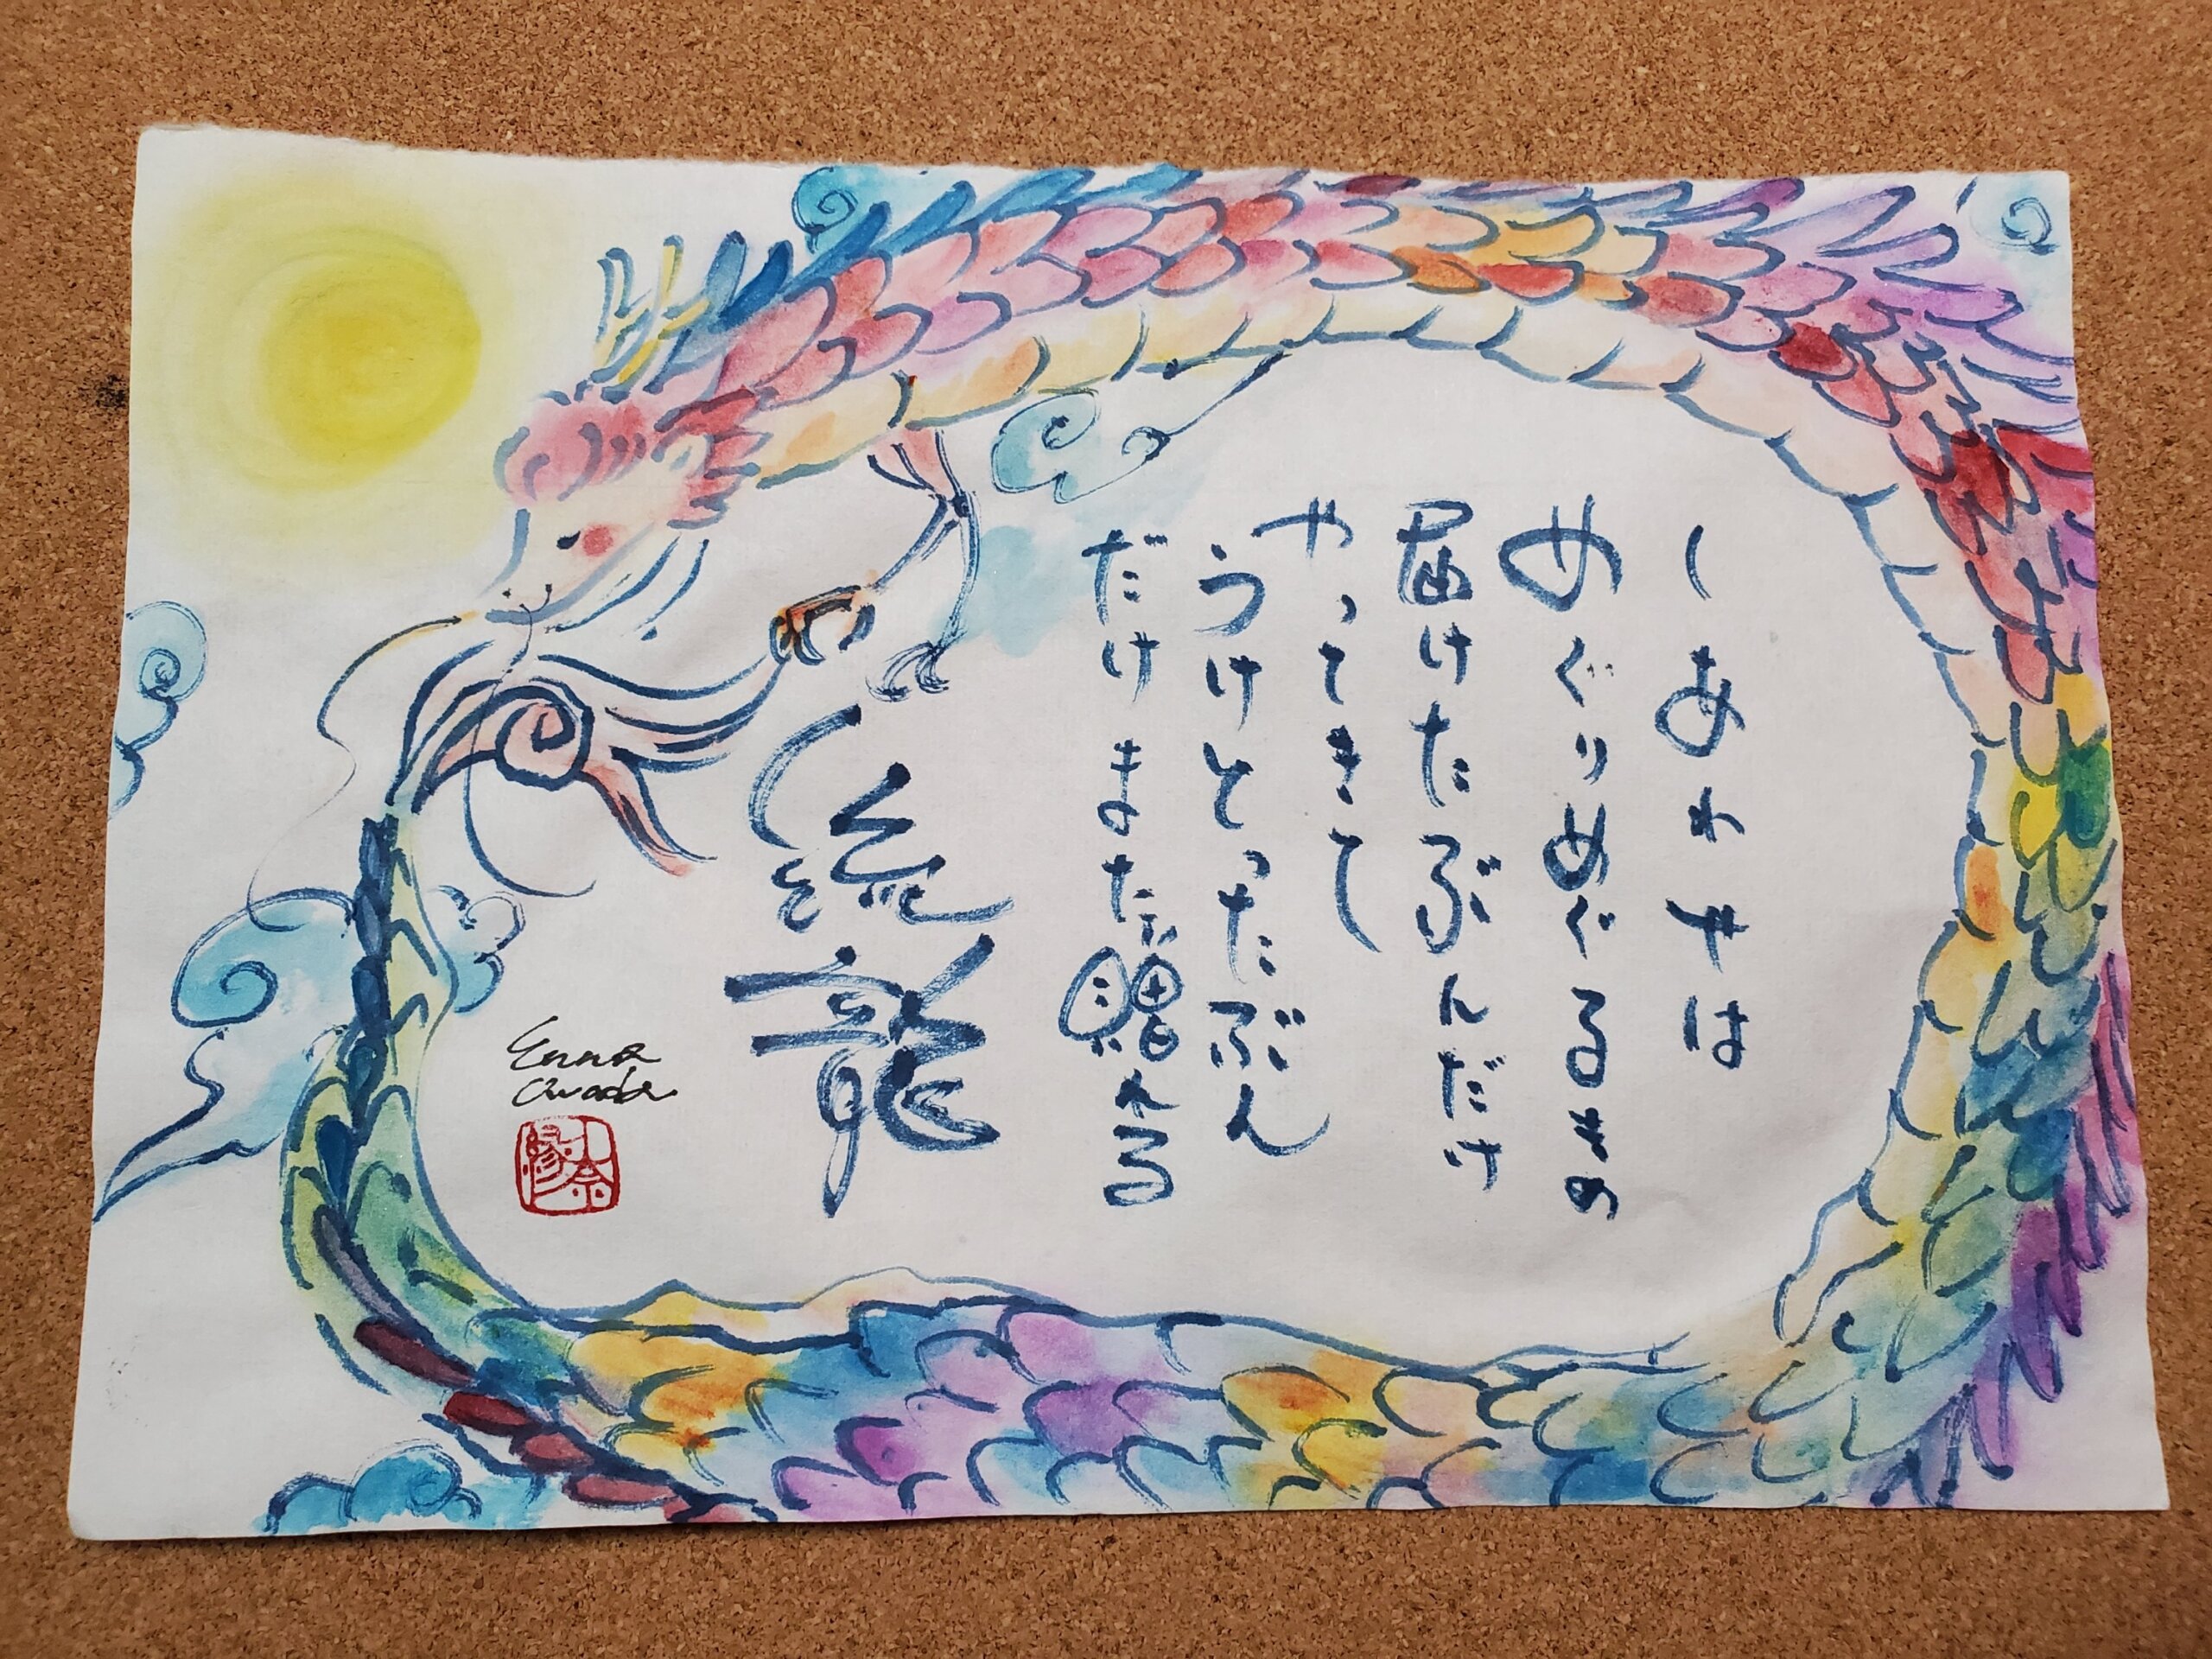 しあわせは
めぐりめぐるもの
届けたぶんだけ
やってきて
うけとったぶん
だけまた贈れる
龍
Enna
縁奈